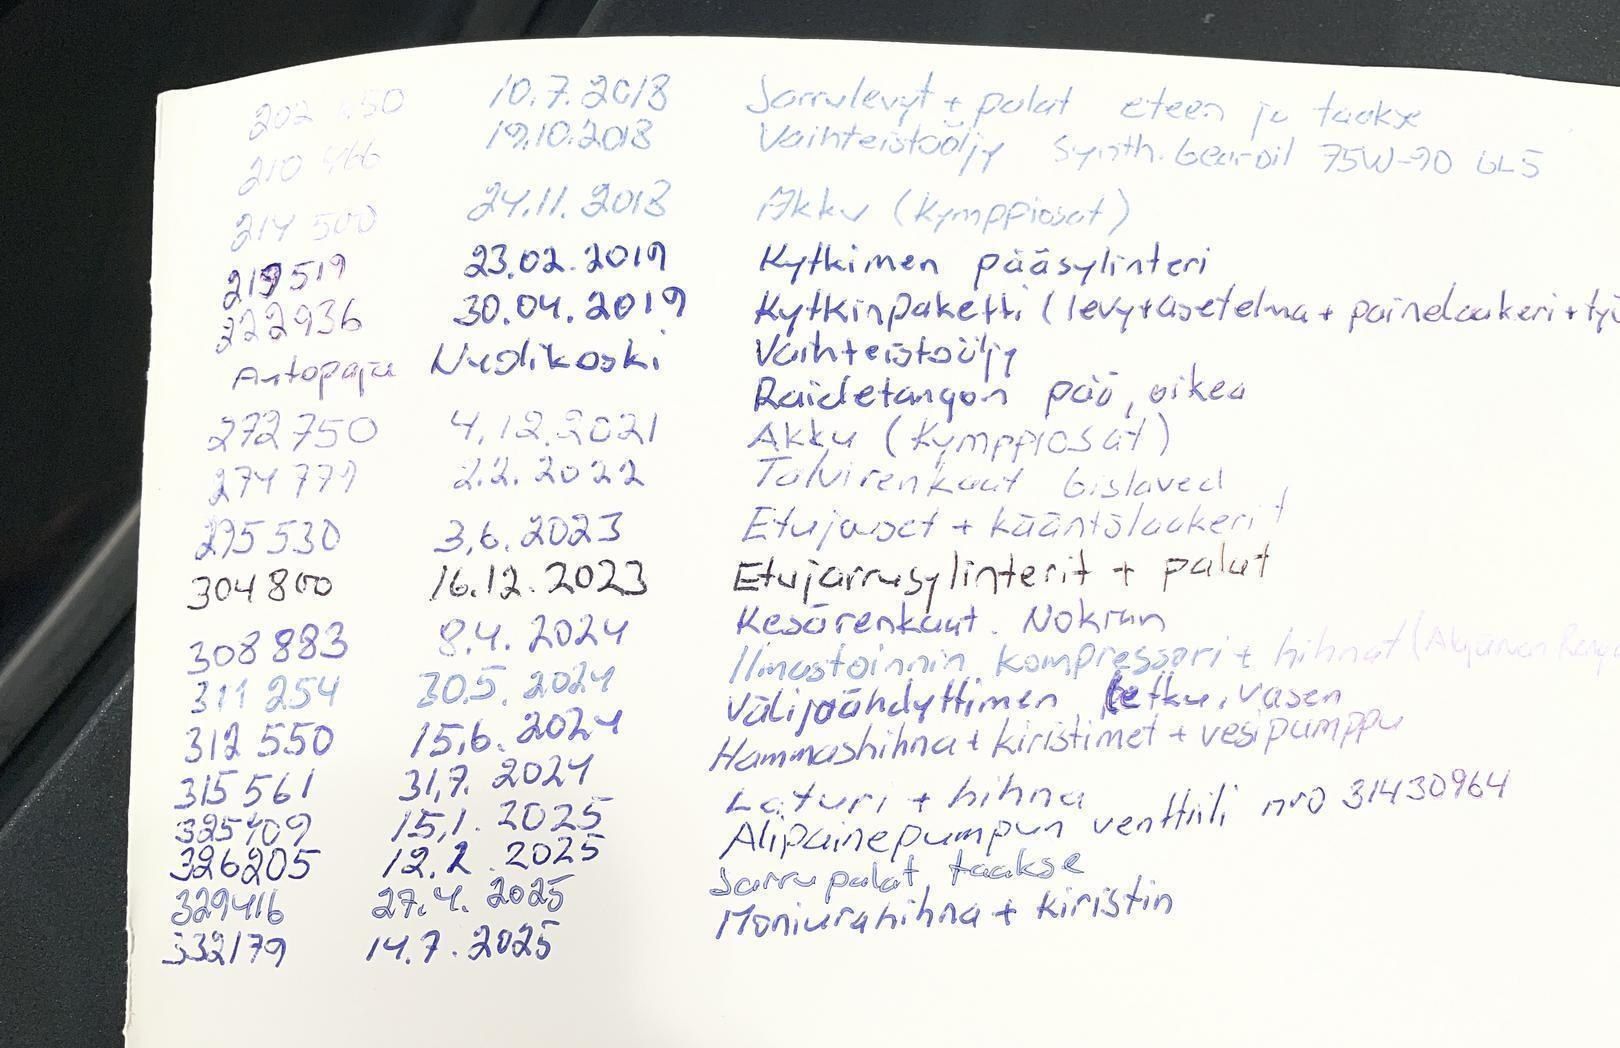 202 10.7.2018 Jarrulevyt + palat eteen ja taakse
210 466 19.10.2018 Vaihteistoöljy Synth. Gearoil 75W-90 GL5
214 500 24.11.2018 Akku (Kymppiosat)
219519 23.02.2019 Kytkimen pääsylinteri
222936 30.04.2019 Kytkinpaketti (levy+asetelma + painelaakeri + työ
Autopaja Vaihteistoöljy
Raidetangon pää, oikea
272750 4.12.2021 Akku (Kymppiosat)
274 779 2.2.2022 Talvirenkaat Gislaved
295530 3.6.2023 Etujouset + kääntölaakerit
304800 16.12.2023 Etujarrusylinterit + palat
308 883 8.4.2024 Kesärenkaat. Nokian
311 254 30.5.2024 Ilmastoinnin kompressori + hihnat
312 550 15.6.2024 Välijäähdyttimen letku, vasen
315 561 31.7.2024 Hammashihna + kiristimet + vesipumppu
325709 15.1.2025 Laturi + hihna
326205 12.2.2025 Alipainepumpun venttiili nro 31430964
329416 27.4.2025 Jarrupalat, taakse
332179 14.7.2025 Moniurahihna + kiristin